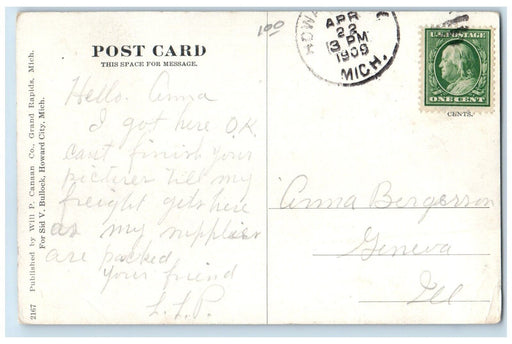 100
HOWA
APR
22
3 PM
1909
MICH.
U.S.POSTAGE
ONE CENT
CENTS.
POST CARD
THIS SPACE FOR MESSAGE.
Hello Anna
I got here O.K.
cant finish your
picturer till my
freight gets here
as my supplies
are packed
Your friend
L.L.P.
Anna Bergerson
Geneva
Ill
2167 Published by Will P. Canaan Co., Grand Rapids, Mich.
For Sid V. Bullock, Howard City, Mich.